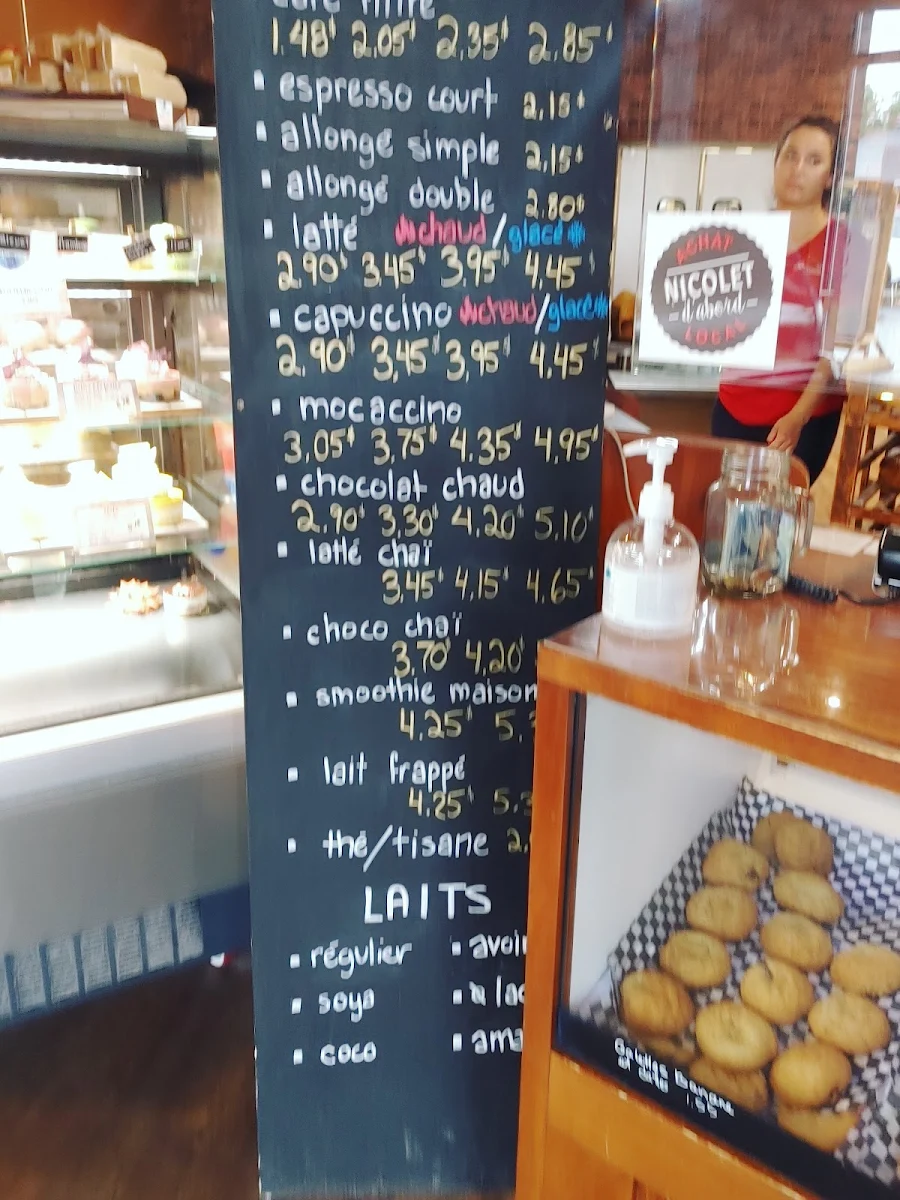 café filtre
1.48$ 2,05$ 2,35$ 2.85$
▪ espresso court 2,15$
▪ allongé simple 2,15$
▪ allongé double 2.80$
▪ latté chaud/glacé
2.90$ 3.45$ 3,95$ 4,45$
▪ capuccino chaud/glacé
2.90$ 3,45$ 3,95$ 4.45$
▪ mocaccino
3,05$ 3,75$ 4.35$ 4,95$
▪ chocolat chaud
2.90$ 3,30$ 4,20$ 5.10$
▪ latté chaï
3,45$ 4,15$ 4,65$
▪ choco chaï
3,70$ 4,20$
▪ smoothie maison
4,25$ 5,
▪ lait frappé
4.25$ 5.3
▪ thé/tisane 2,
LAITS
▪ régulier ▪ avoi
▪ soya ▪ la
▪ coco ▪ ama
ACHAT
NICOLET
d'abord
LOCAL
Galettes Banane
et
1.95